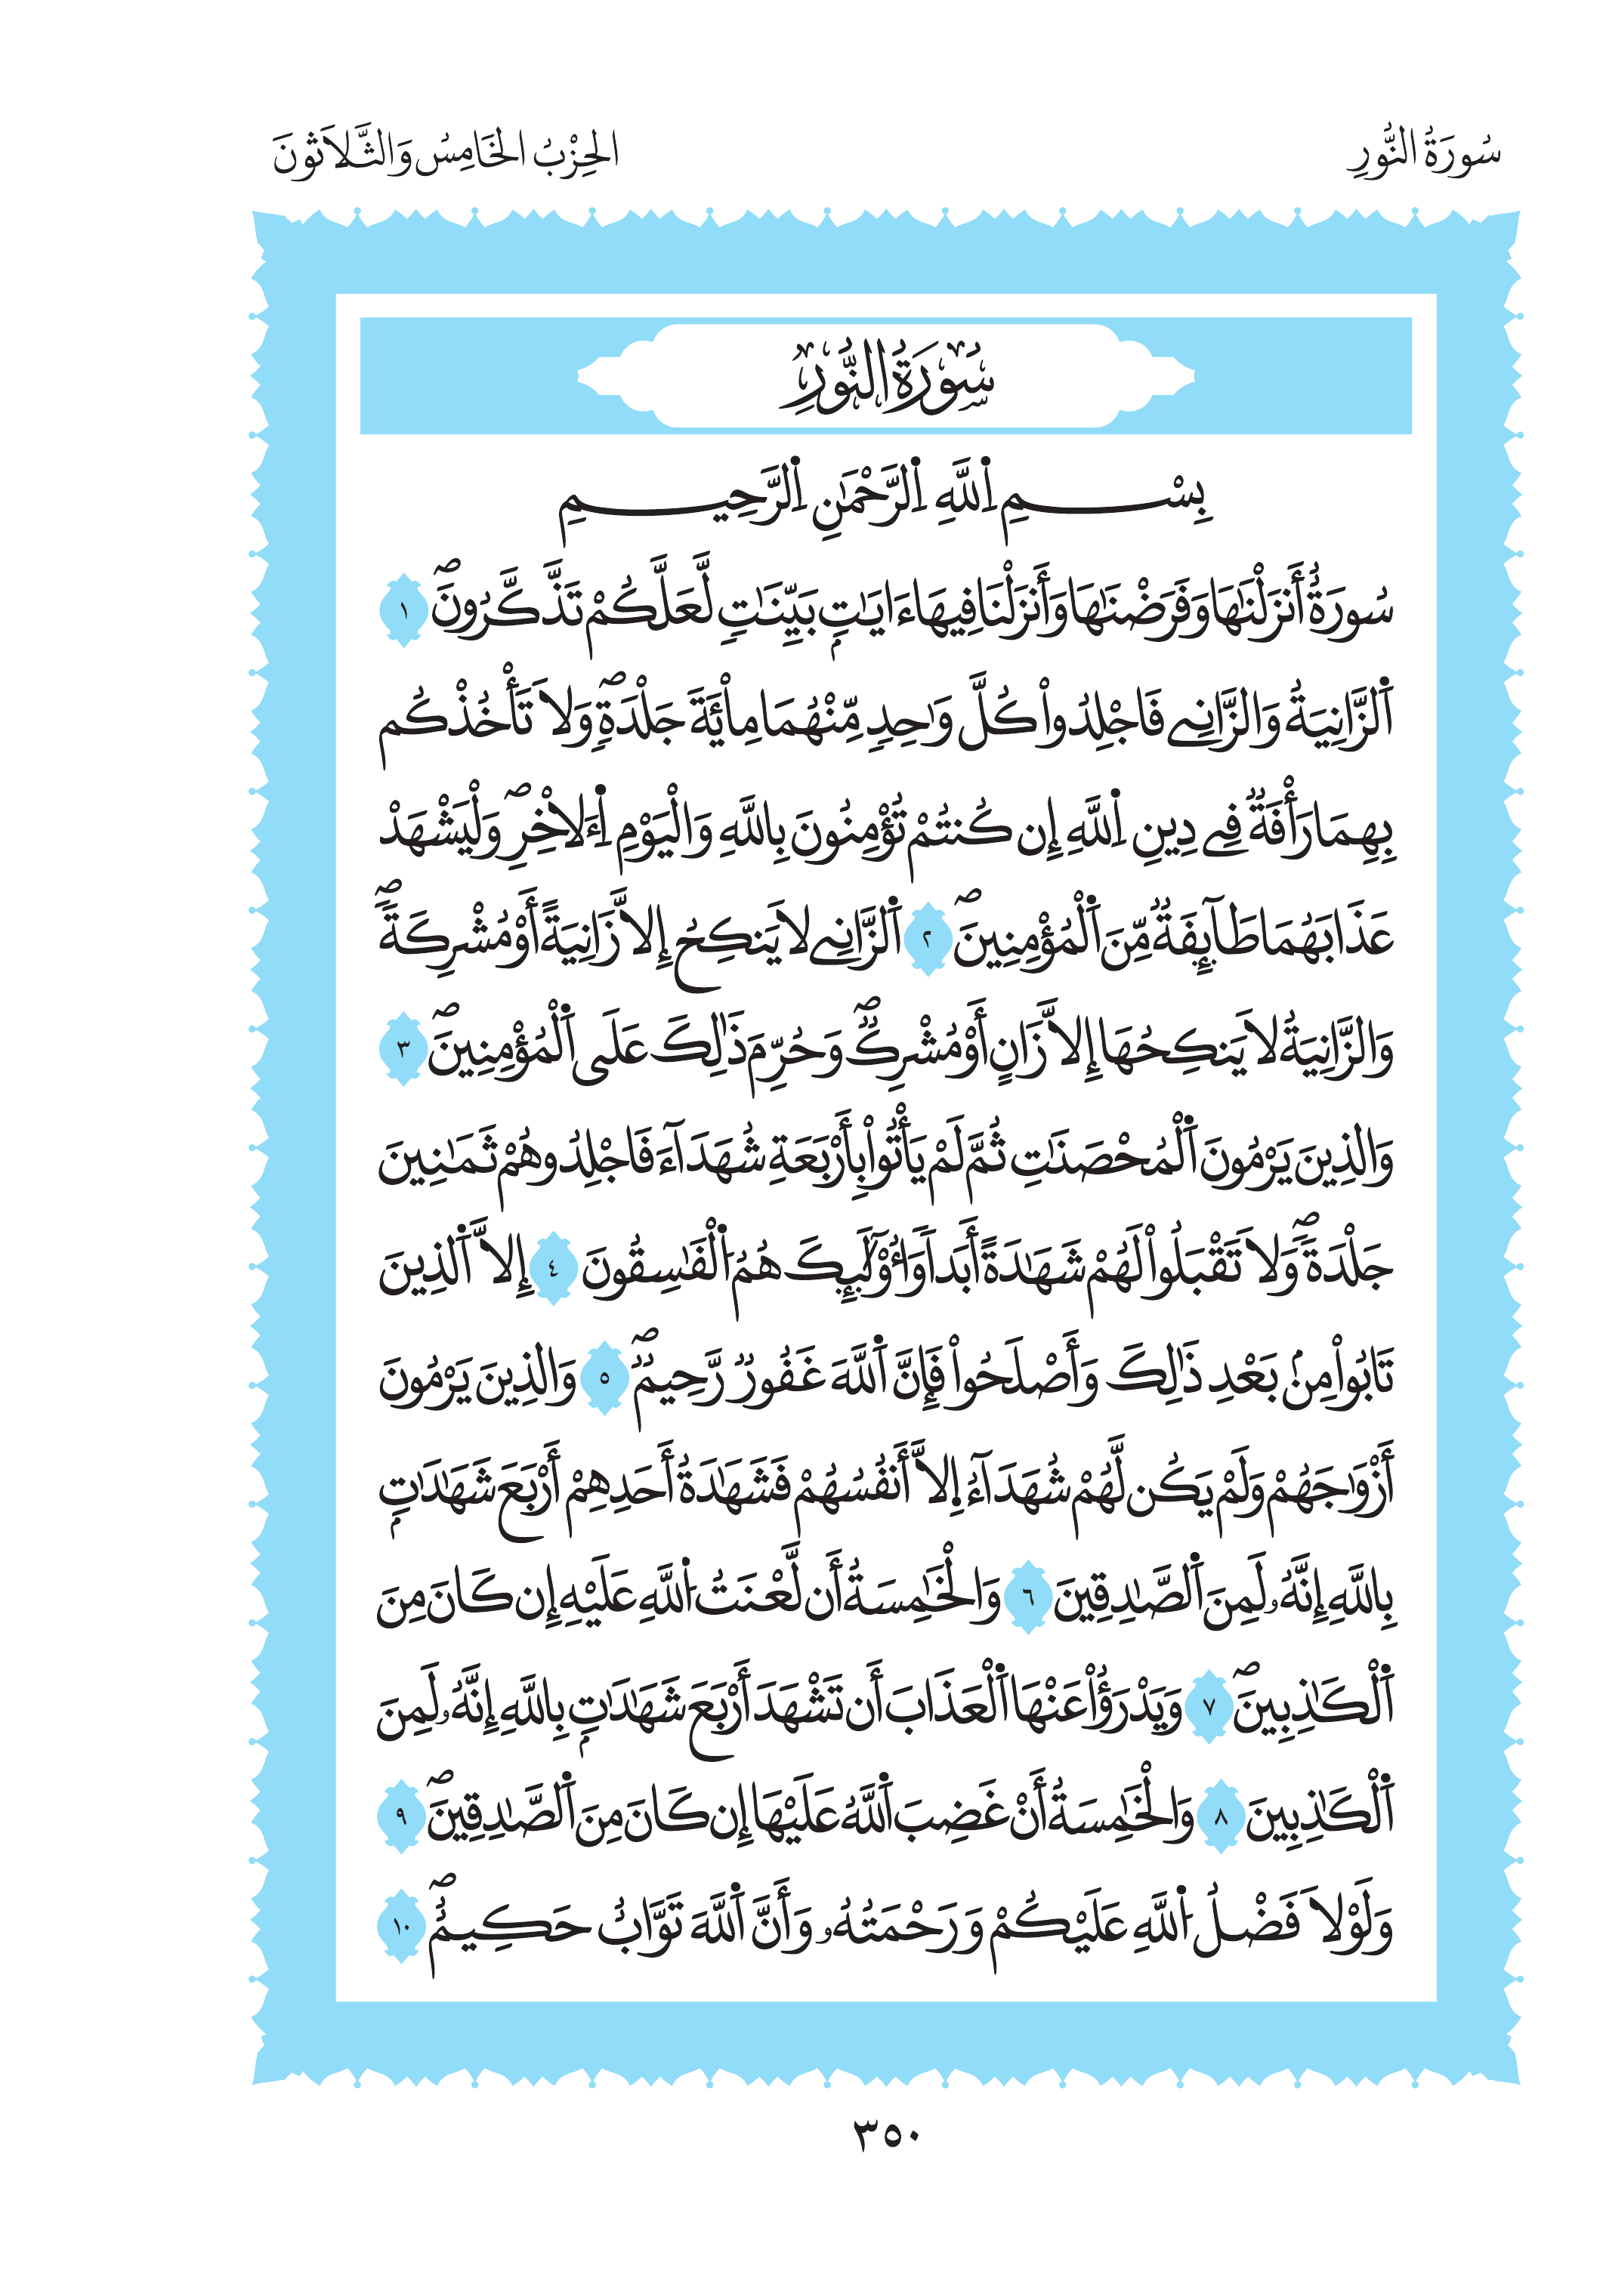 سُورَةُ النُّورِ
الحِزْبُ الخَامِسُ وَالثَّلاَثُونَ
سُورَةُ النُّورِ
بِسْمِ اِ۬للَّهِ اِ۬لرَّحْمَٰنِ اِ۬لرَّحِيمِ
سُورَةٌ أَنزَلْنَٰهَا وَفَرَضْنَٰهَا وَأَنزَلْنَا فِيهَا ءَايَٰتِۢ بَيِّنَٰتٖ لَّعَلَّكُمْ تَذَّكَّرُونَۖ ١
اَ۬لزَّانِيَةُ وَالزَّانِے فَاجْلِدُواْ كُلَّ وَٰحِدٖ مِّنْهُمَا مِاْئَةَ جَلْدَةٖۖ وَلاَ تَأْخُذْكُم
بِهِمَا رَأْفَةٞ فِے دِينِ اِ۬للَّهِ إِن كُنتُمْ تُؤْمِنُونَ بِاللَّهِ وَالْيَوْمِ اِ۬لَاخِرِۖ وَلْيَشْهَدْ
عَذَابَهُمَا طَآئِفَةٞ مِّنَ اَ۬لْمُؤْمِنِينَۖ ٢ اَ۬لزَّانِے لاَ يَنكِحُ إِلاَّ زَانِيَةً أَوْ مُشْرِكَةٗۖ
وَالزَّانِيَةُ لاَ يَنكِحُهَا إِلاَّ زَانٍ أَوْ مُشْرِكٞۖ وَحُرِّمَ ذَٰلِكَ عَلَى اَ۬لْمُؤْمِنِينَۖ ٣
وَالذِينَ يَرْمُونَ اَ۬لْمُحْصَنَٰتِ ثُمَّ لَمْ يَأْتُواْ بِأَرْبَعَةِ شُهَدَآءَ فَاجْلِدُوهُمْ ثَمَٰنِينَ
جَلْدَةٗۖ وَلاَ تَقْبَلُواْ لَهُمْ شَهَٰدَةً أَبَداٗ وَأُوْلَٰٓئِكَ هُمُ اُ۬لْفَٰسِقُونَ ٤ إِلاَّ اَ۬لذِينَ
تَابُواْ مِنۢ بَعْدِ ذَٰلِكَ وَأَصْلَحُواْ فَإِنَّ اَ۬للَّهَ غَفُورٞ رَّحِيمٞۖ ٥ وَالذِينَ يَرْمُونَ
أَزْوَٰجَهُمْ وَلَمْ يَكُن لَّهُمْ شُهَدَآءُ اِ۪لاَّ أَنفُسُهُمْ فَشَهَٰدَةُ أَحَدِهِمْ أَرْبَعَ شَهَٰدَٰتِۢ
بِاللَّهِ إِنَّهُۥ لَمِنَ اَ۬لصَّٰدِقِينَ ٦ وَالْخَٰمِسَةُ أَن لَّعْنَتُ اُ۬للَّهِ عَلَيْهِ إِن كَانَ مِنَ
اَ۬لْكَٰذِبِينَۖ ٧ وَيَدْرَؤُاْ عَنْهَا اَ۬لْعَذَابَ أَن تَشْهَدَ أَرْبَعَ شَهَٰدَٰتِۢ بِاللَّهِ إِنَّهُۥ لَمِنَ
اَ۬لْكَٰذِبِينَ ٨ وَالْخَٰمِسَةُ أَنْ غَضِبَ اَ۬للَّهُ عَلَيْهَا إِن كَانَ مِنَ اَ۬لصَّٰدِقِينَۖ ٩
وَلَوْلاَ فَضْلُ اُ۬للَّهِ عَلَيْكُمْ وَرَحْمَتُهُۥ وَأَنَّ اَ۬للَّهَ تَوَّابٌ حَكِيمٌۖ ١٠
٣٥٠